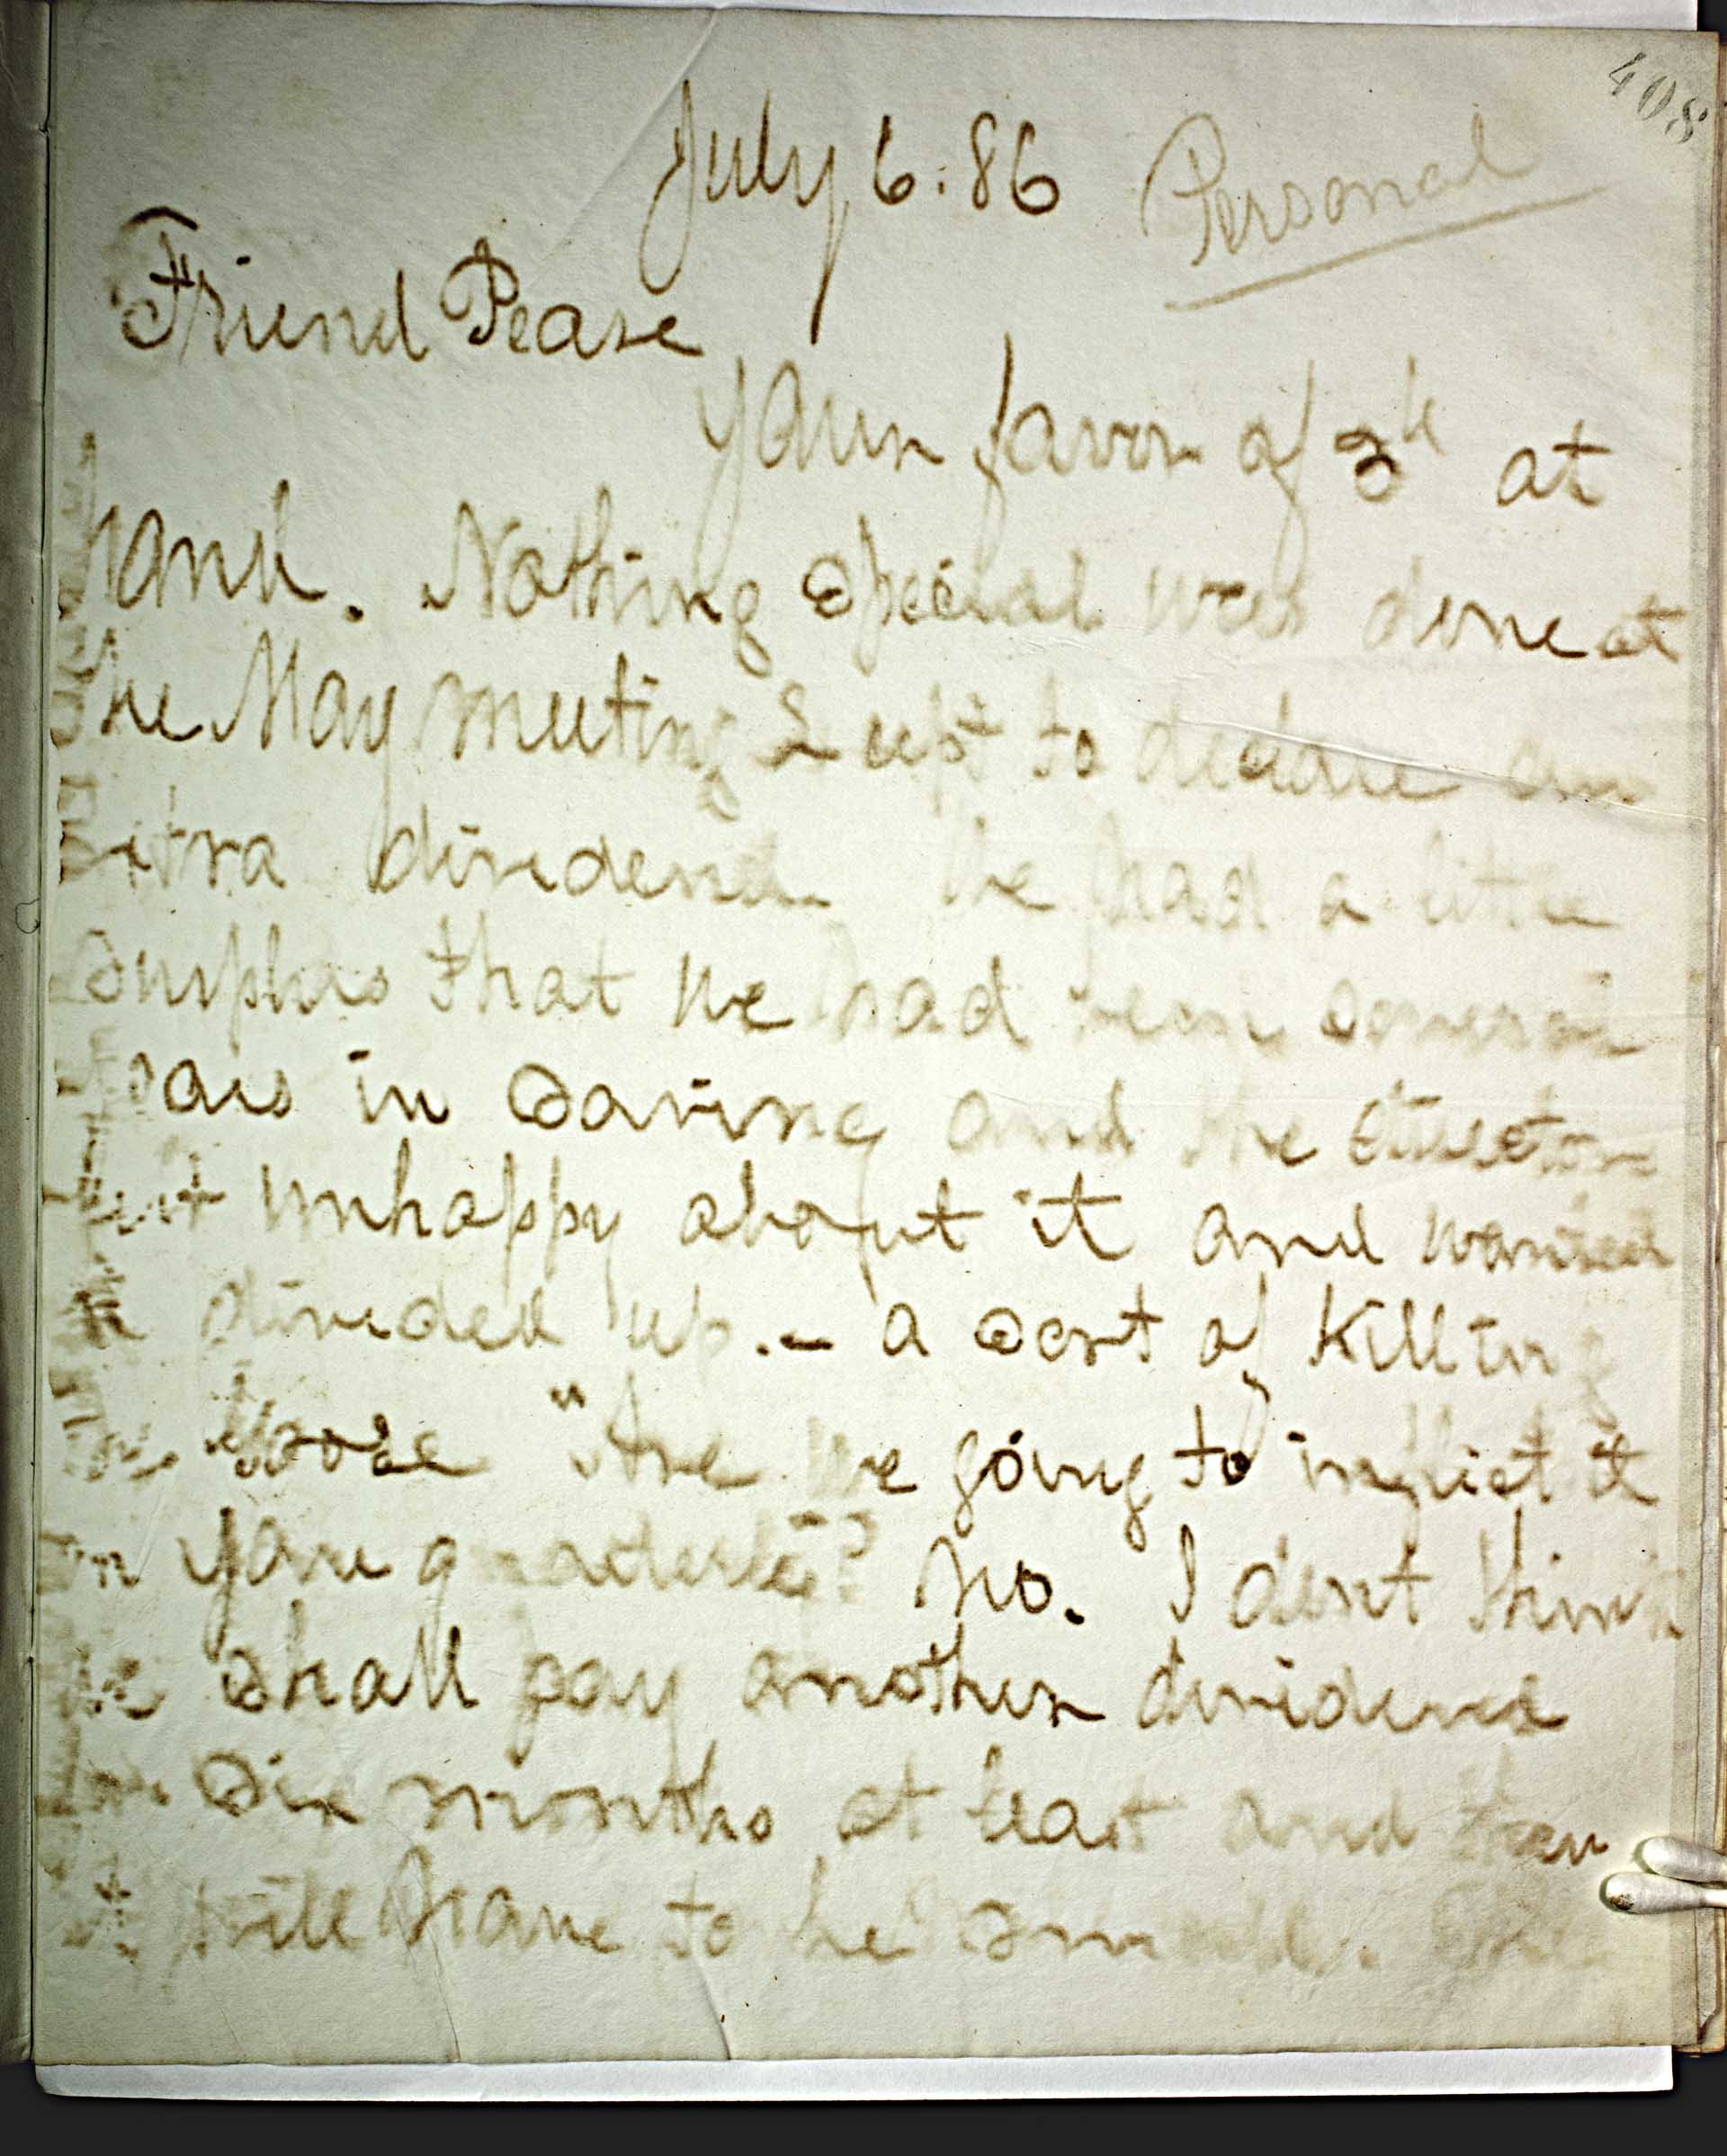 408
July 6. 86 Personal
Friend Pease
Your favor of 3d at
hand. Nothing special was done at
the May meeting except to declare an
extra dividend. We had a little
surplus that we had been several
years in saving and the directors
felt unhappy about it and wanted
it divided up. — a sort of killing
the goose "Are we going to inflict it
on your quarterly"? No. I dont think
we shall pay another dividend
for six months at least and then
it will have to be small.